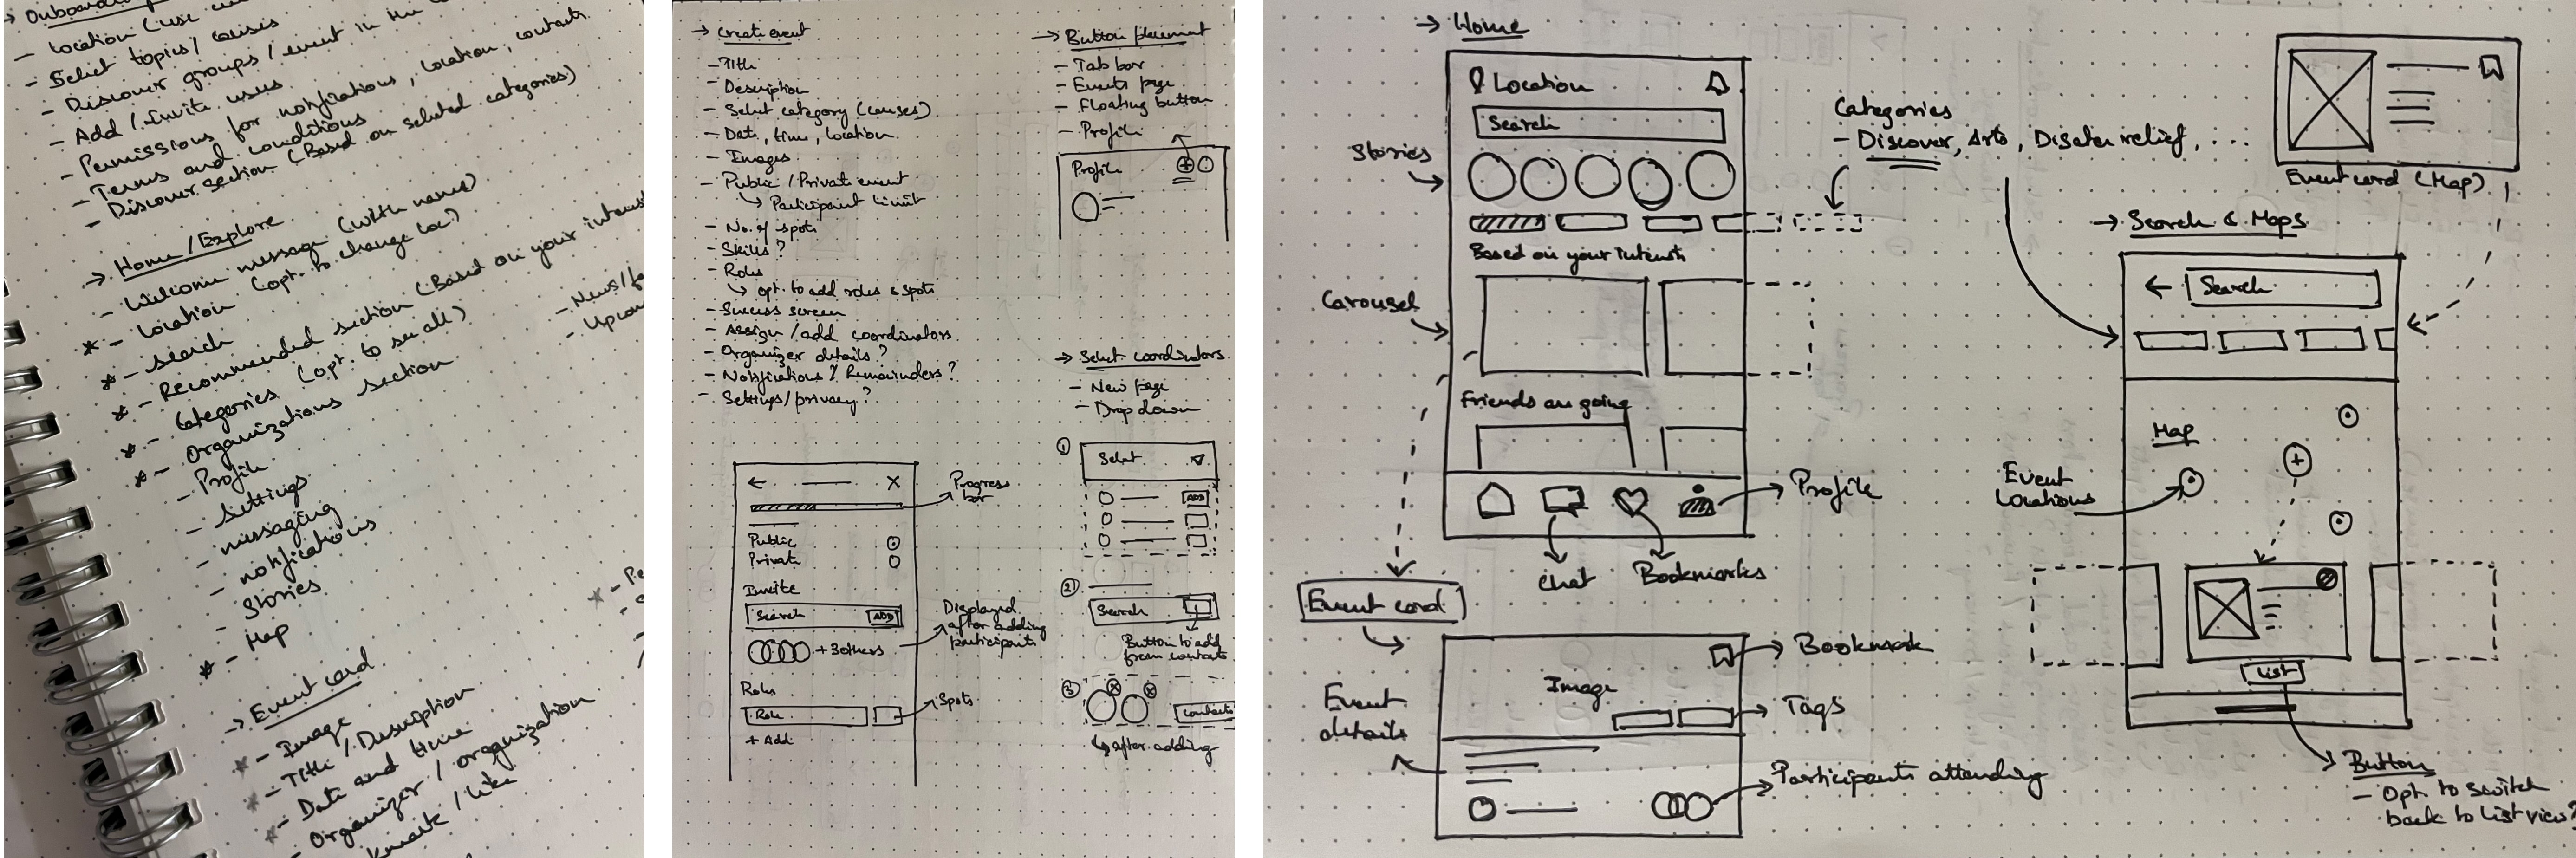 → Onboarding
- Location (use
- Select topics / causes
- Discover groups / event in the
- Add / Invite users
- Permissions for notifications, location, contacts
- Terms and conditions
- Discover section (Based on selected categories)
→ Home / Explore
- Welcome message (with name)
* - Location (opt. to change loc)
* - Search
* - Recommended section (Based on your
* - Categories (opt. to see all)
* - Organizations section
- Profile
- Settings
- messaging
- notifications
- Stories
* - Map
- News/
- Upcom
→ Event card
* - Image
* - Title / Description
* - Date and time
- Organizer / organization
/ like
→ Create event
- Title
- Description
- Select category (causes)
- Date, time, location
- Images
- Public / Private event
↳ Participant limit
- No. of spots
- Skills?
- Roles
↳ opt. to add roles & spots
- Success screen
- Assign / add coordinators
- Organizer details?
- Notifications / Remainders?
- Settings / privacy?
→ Button placement
- Tab bar
- Events page
- Floating button
- Profile
Profile
→ Select coordinators
- New page
- Drop down
← X
Progress bar
Public
Private
Invite
Search ADD
+3 others
Displayed
after adding
participants
Roles
Role
Spots
+ Add
①
Select
ADD
②
Search
Button to add
from contacts
③
Contacts
↳ after adding
→ Home
Location
Search
Stories
Categories
- Discover, Arts, Disaster relief, ...
Based on your
Carousel
Friends are going
Profile
Chat
Bookmarks
Event card
Image
Bookmark
Tags
Event
details
Participants attending
Event card (Map)
→ Search & Maps
← Search
Map
Event
Locations
List
Button
- Opt. to switch
back to list view?